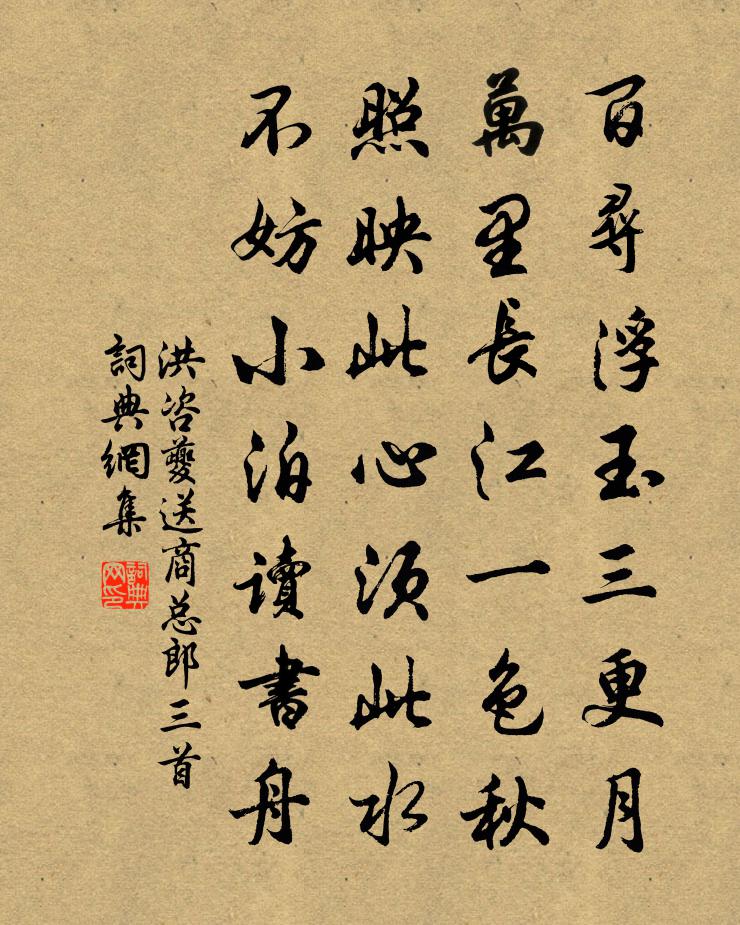 百尋浮玉三更月
萬里長江一色秋
照映此心須此水
不妨小泊讀書舟
洪咨夔送商总郎三首
詞典網集
詞典网印